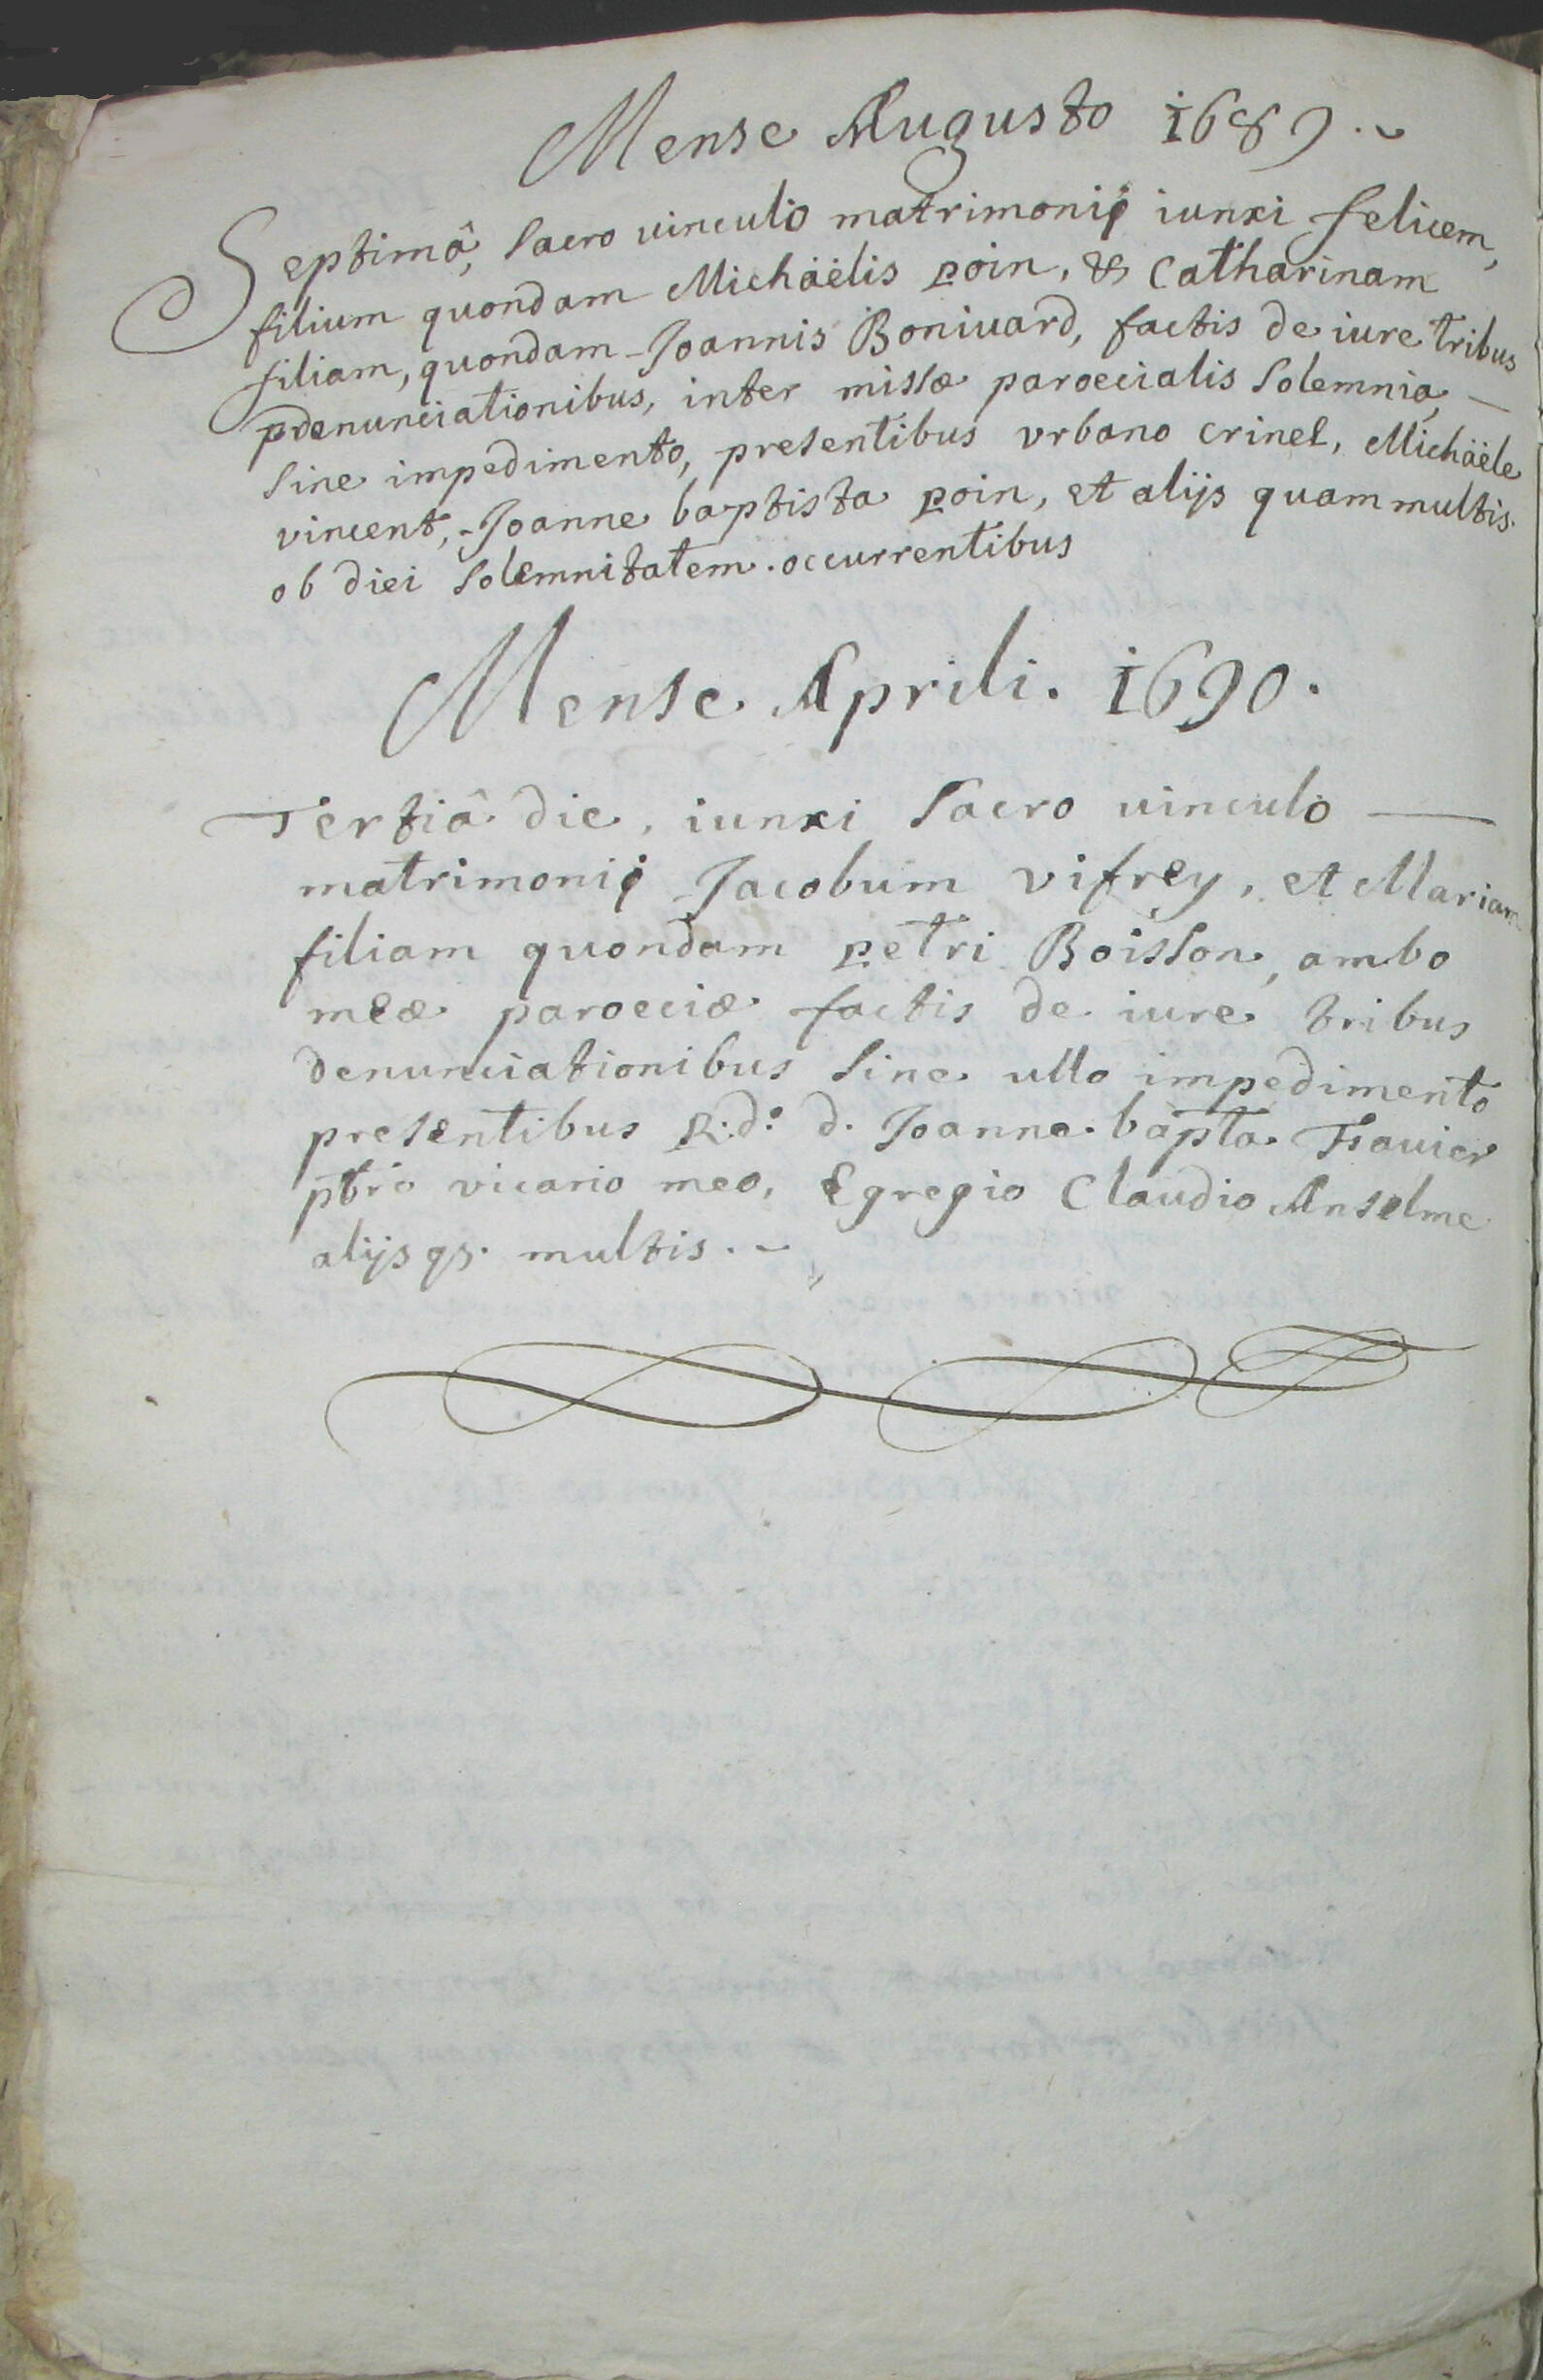 Mense Augusto 1689.
Septimâ, sacro uinculo matrimonij iunxi felicem,
filium quondam Michäelis poin, & Catharinam
filiam, quondam Joannis Boniuard, factis de iure tribus
denunciationibus, inter missæ paroecialis solemnia,
sine impedimento, presentibus vrbano crinel, Michäele
vincent, Joanne baptista poin, et alijs quam multis
ob diei solemnitatem occurrentibus
Mense Aprili. 1690.
Tertiâ die, iunxi sacro uinculo
matrimonij Jacobum vifrey, et Mariam
filiam quondam petri Boisson, ambo
meæ paroeciæ factis de iure tribus
denunciationibus sine ullo impedimento
presentibus R.do d. Joanne bapta
pbro vicario meo, Egregio Claudio Anselme
alijsqs. multis.